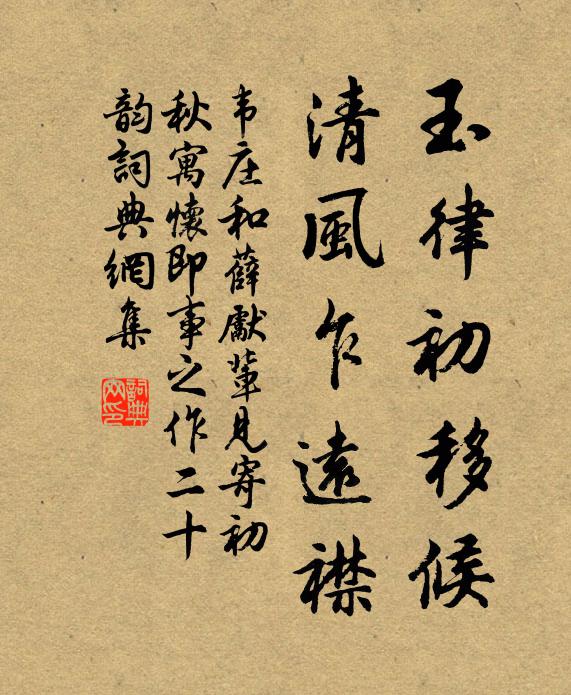 玉律初移候
清風乍遠襟
韦庄和薛獻輩見寄初
秋寓懷即事之作二十
韵詞典網集
詞典
网印